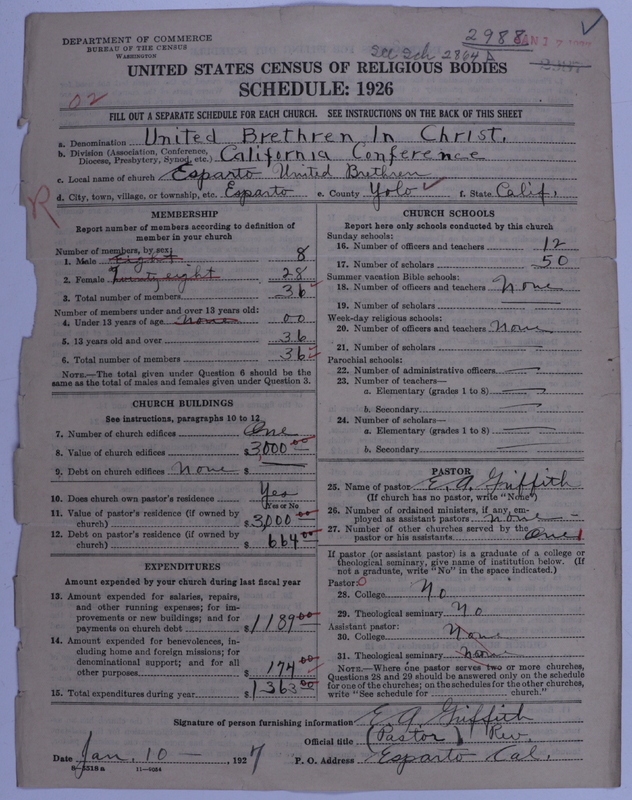 2988
JAN 17
See Sch 2864 A
DEPARTMENT OF COMMERCE
BUREAU OF THE CENSUS
WASHINGTON
UNITED STATES CENSUS OF RELIGIOUS BODIES
SCHEDULE: 1926
02
FILL OUT A SEPARATE SCHEDULE FOR EACH CHURCH. SEE INSTRUCTIONS ON THE BACK OF THIS SHEET
a. Denomination United Brethren In Christ.
b. Division (Association, Conference, Diocese, Presbytery, Synod, etc.) California Conference
c. Local name of church Esparto United Brethren
d. City, town, village, or township, etc. Esparto e. County Yolo f. State Calif.
R
MEMBERSHIP
Report number of members according to definition of
member in your church
Number of members, by sex:
1. Male Eight 8
2. Female Twenty eight 28
3. Total number of members 36
Number of members under and over 13 years old:
4. Under 13 years of age none 00
5. 13 years old and over 36
6. Total number of members 36
NOTE.—The total given under Question 6 should be
same as the total of males and females given under Question 3.
CHURCH BUILDINGS
See instructions, paragraphs 10 to 12
7. Number of church edifices One
8. Value of church edifices $3,000.00
9. Debt on church edifices None $
10. Does church own pastor's residence Yes
Yes or No
11. Value of pastor's residence (if owned by
church) $3,000.00
12. Debt on pastor's residence (if owned by
church) $ 664.00
EXPENDITURES
Amount expended by your church during last fiscal year
13. Amount expended for salaries, repairs,
and other running expenses; for im-
provements or new buildings; and for
payments on church debt $1189.00
14. Amount expended for benevolences, in-
cluding home and foreign missions; for
denominational support; and for all
other purposes $ 174.00
15. Total expenditures during year $1363.00
CHURCH SCHOOLS
Report here only schools conducted by this church
Sunday schools:
16. Number of officers and teachers 12
17. Number of scholars 50
Summer vacation Bible schools:
18. Number of officers and teachers None
19. Number of scholars
Week-day religious schools:
20. Number of officers and teachers None
21. Number of scholars
Parochial schools:
22. Number of administrative officers
23. Number of teachers—
a. Elementary (grades 1 to 8)
b. Secondary
24. Number of scholars—
a. Elementary (grades 1 to 8)
b. Secondary
PASTOR
25. Name of pastor E. A. Griffith
(If church has no pastor, write "None")
26. Number of ordained ministers, if any, em-
ployed as assistant pastors none
27. Number of other churches served by the
pastor or his assistants One 1
If pastor (or assistant pastor) is a graduate of a college or
theological seminary, give name of institution below. (If
not a graduate, write "No" in the space indicated.)
Pastor: 0
28. College No
29. Theological seminary No
Assistant pastor:
30. College None
31. Theological seminary none
NOTE.—Where one pastor serves two or more churches,
Questions 28 and 29 should be answered only on the schedule
for one of the churches; on the schedules for the other churches,
write "See schedule for church."
Signature of person furnishing information E. A. Griffith
Official title (Pastor) Rev.
Date Jan. 10 — , 1927 P. O. Address Esparto Cal.
8—5518 a 11—9054